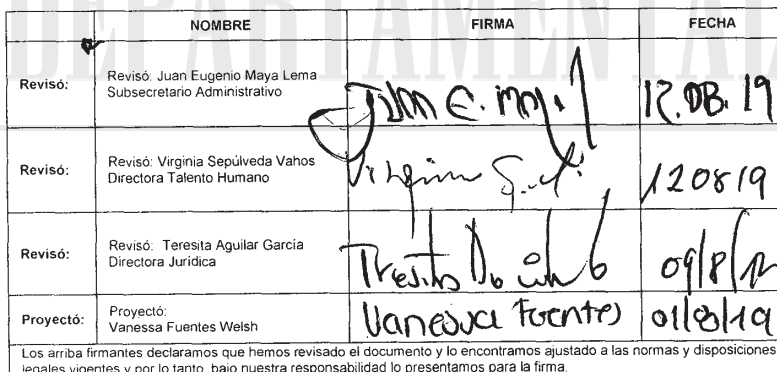 DEPARTAMENTAL
NOMBRE FIRMA FECHA
Revisó: Revisó: Juan Eugenio Maya Lema
Subsecretario Administrativo
Juan E. May. 12.08.19
Revisó: Revisó: Virginia Sepúlveda Vahos
Directora Talento Humano
Virginia 120819
Revisó: Revisó: Teresita Aguilar García
Directora Jurídica
Teresita 09/8/
Proyectó: Proyectó:
Vanessa Fuentes Welsh
Vanessa Fuentes 01/8/19
Los arriba firmantes declaramos que hemos revisado el documento y lo encontramos ajustado a las normas y disposiciones
legales vigentes y por lo tanto, bajo nuestra responsabilidad lo presentamos para la firma.